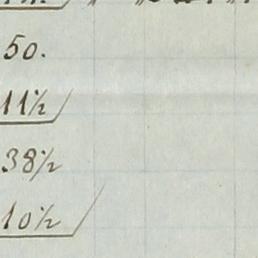 50.
11½
38½
10½